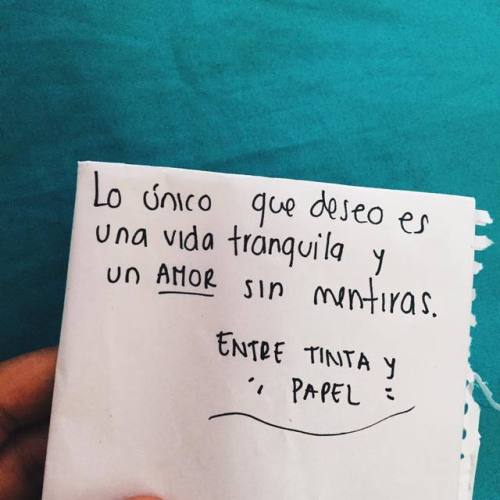 Lo único que deseo es
una vida tranquila y
un AMOR sin mentiras.
ENTRE TINTA y
PAPEL